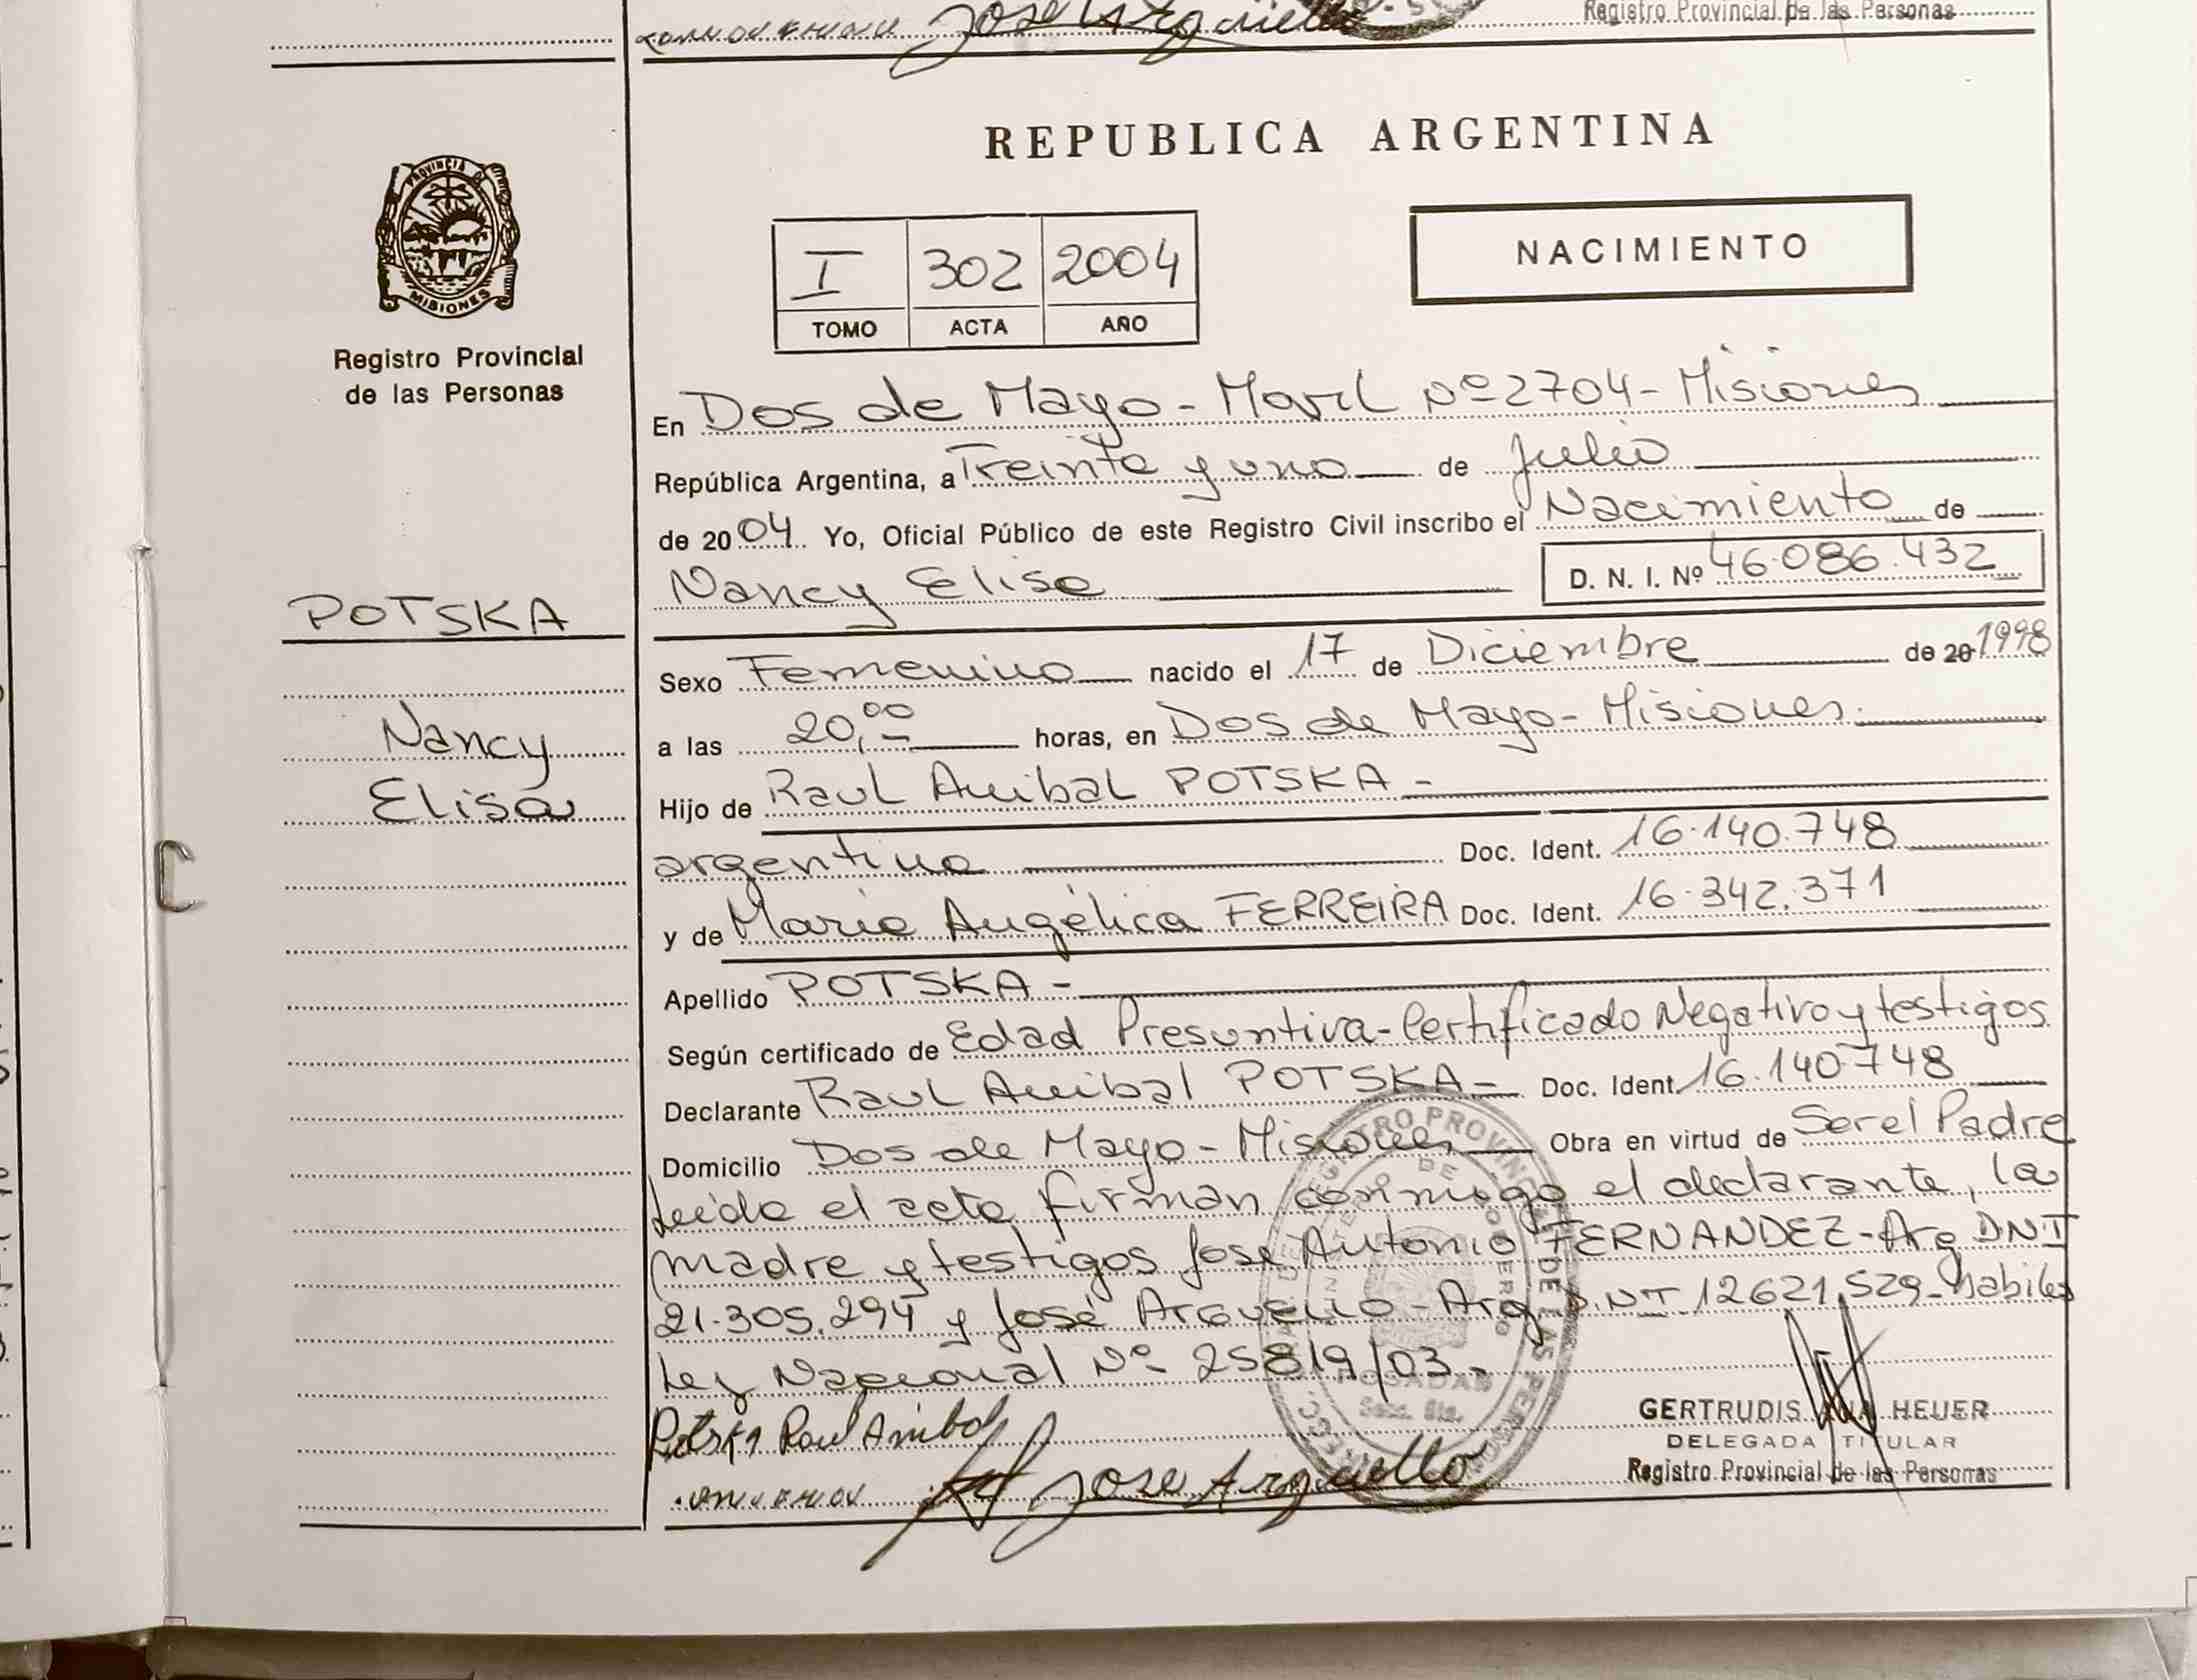 Jose Arguello
Registro Provincial de las Personas
PROVINCIA DE
MISIONES
Registro Provincial
de las Personas
REPUBLICA ARGENTINA
I 302 2004
TOMO ACTA AÑO
NACIMIENTO
En Dos de Mayo - Movil Nº 2704 - Misiones
República Argentina, a Treinta y uno de Julio
de 2004 Yo, Oficial Público de este Registro Civil inscribo el Nacimiento de
Nancy Elisa D. N. I. Nº 46.086.432
POTSKA
Nancy
Elisa
Sexo Femenino nacido el 17 de Diciembre de 20 1998
a las 20,00 horas, en Dos de Mayo - Misiones.
Hijo de Raul Anibal POTSKA -
argentina Doc. Ident. 16.140.748
y de Maria Angélica FERREIRA Doc. Ident. 16.342.371
Apellido POTSKA -
Según certificado de Edad Presuntiva - Certificado Negativo y testigos
Declarante Raul Anibal POTSKA - Doc. Ident. 16.140.748
Domicilio Dos de Mayo - Misiones Obra en virtud de Ser el Padre
Leida el acta firman conmigo el declarante, la
madre y testigos Jose Antonio FERNANDEZ - Arg DNI
21.305.294 y José Arguello - Arg D.N.I. 12621.529 - habiles
Ley Nacional Nº 25819/03 -
Potska Raul Anibal
Jose Arguello
GERTRUDIS HEUER
DELEGADA TITULAR
Registro Provincial de las Personas